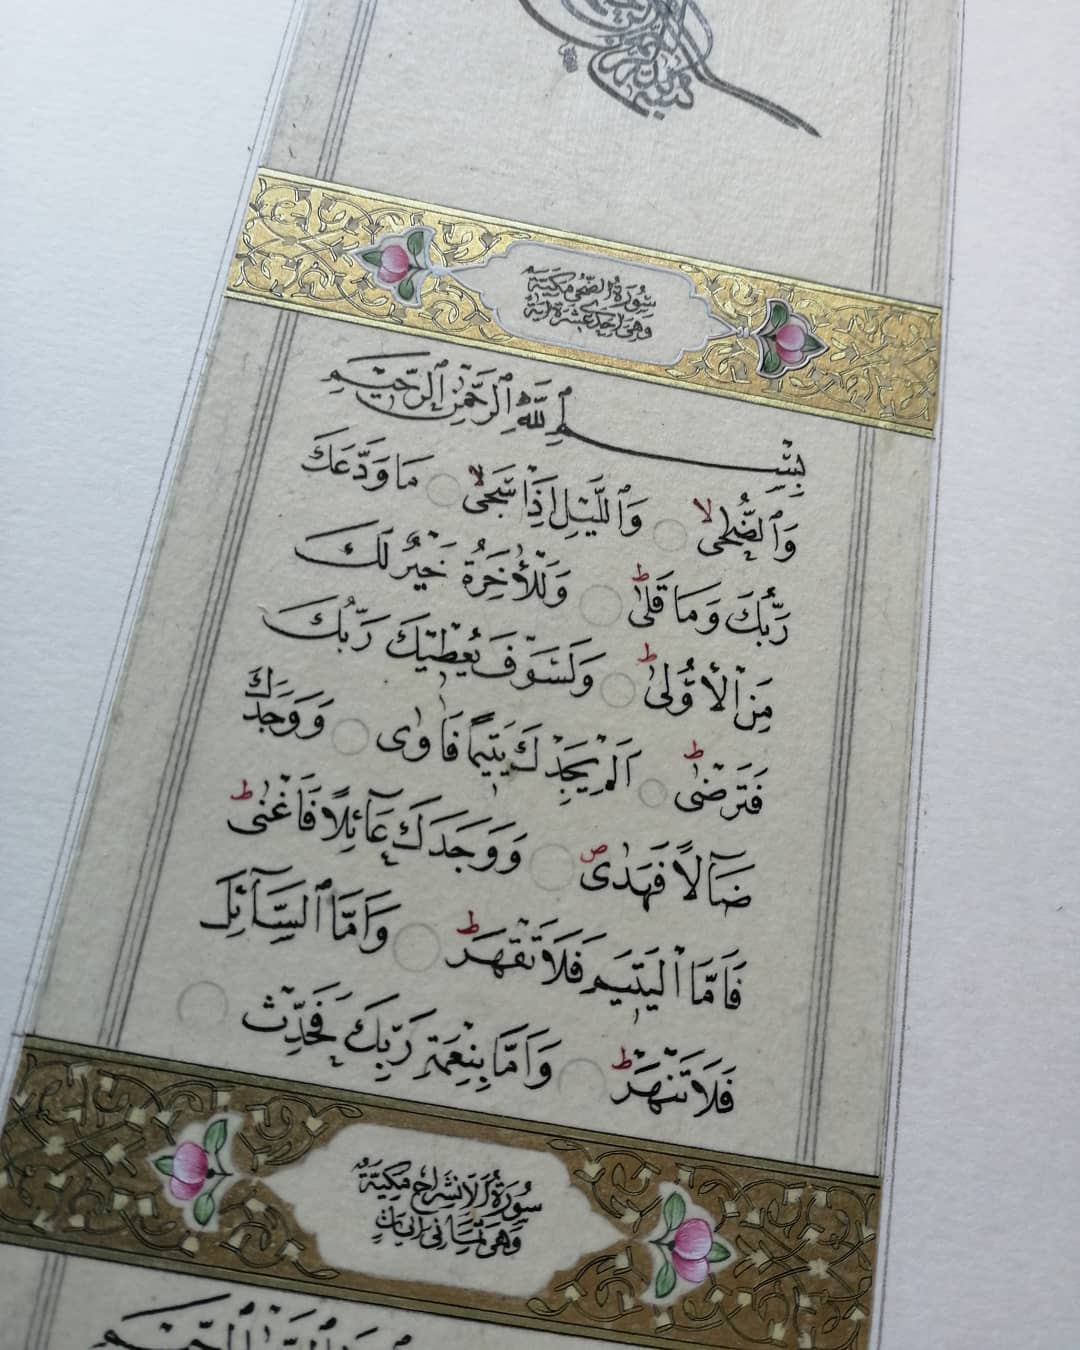 سُورَةُ الضُّحٰى مَكِّيَّةٌ
وَهِيَ اِحْدٰى عَشْرَةَ اٰيَةً
بِسْمِ ٱللّٰهِ ٱلرَّحْمٰنِ ٱلرَّحِيمِ
وَٱلضُّحٰىۙ وَٱلَّيْلِ اِذَا سَجٰىۙ مَا وَدَّعَكَ
رَبُّكَ وَمَا قَلٰىؕ وَلَلْاٰخِرَةُ خَيْرٌ لَكَ
مِنَ ٱلْاُو۫لٰىؕ وَلَسَوْفَ يُعْطِيكَ رَبُّكَ
فَتَرْضٰىؕ اَلَمْ يَجِدْكَ يَتِيمًا فَاٰوٰى وَوَجَدَكَ
ضَٓالًّا فَهَدٰىۖ وَوَجَدَكَ عَٓائِلًا فَاَغْنٰىؕ
فَاَمَّا ٱلْيَتِيمَ فَلَا تَقْهَرْؕ وَاَمَّا ٱلسَّٓائِلَ
فَلَا تَنْهَرْؕ وَاَمَّا بِنِعْمَةِ رَبِّكَ فَحَدِّثْ
سُورَةُ الْاِنْشِرَاحِ مَكِّيَّةٌ
وَهِيَ ثَمَانِى اٰيَاتٍ